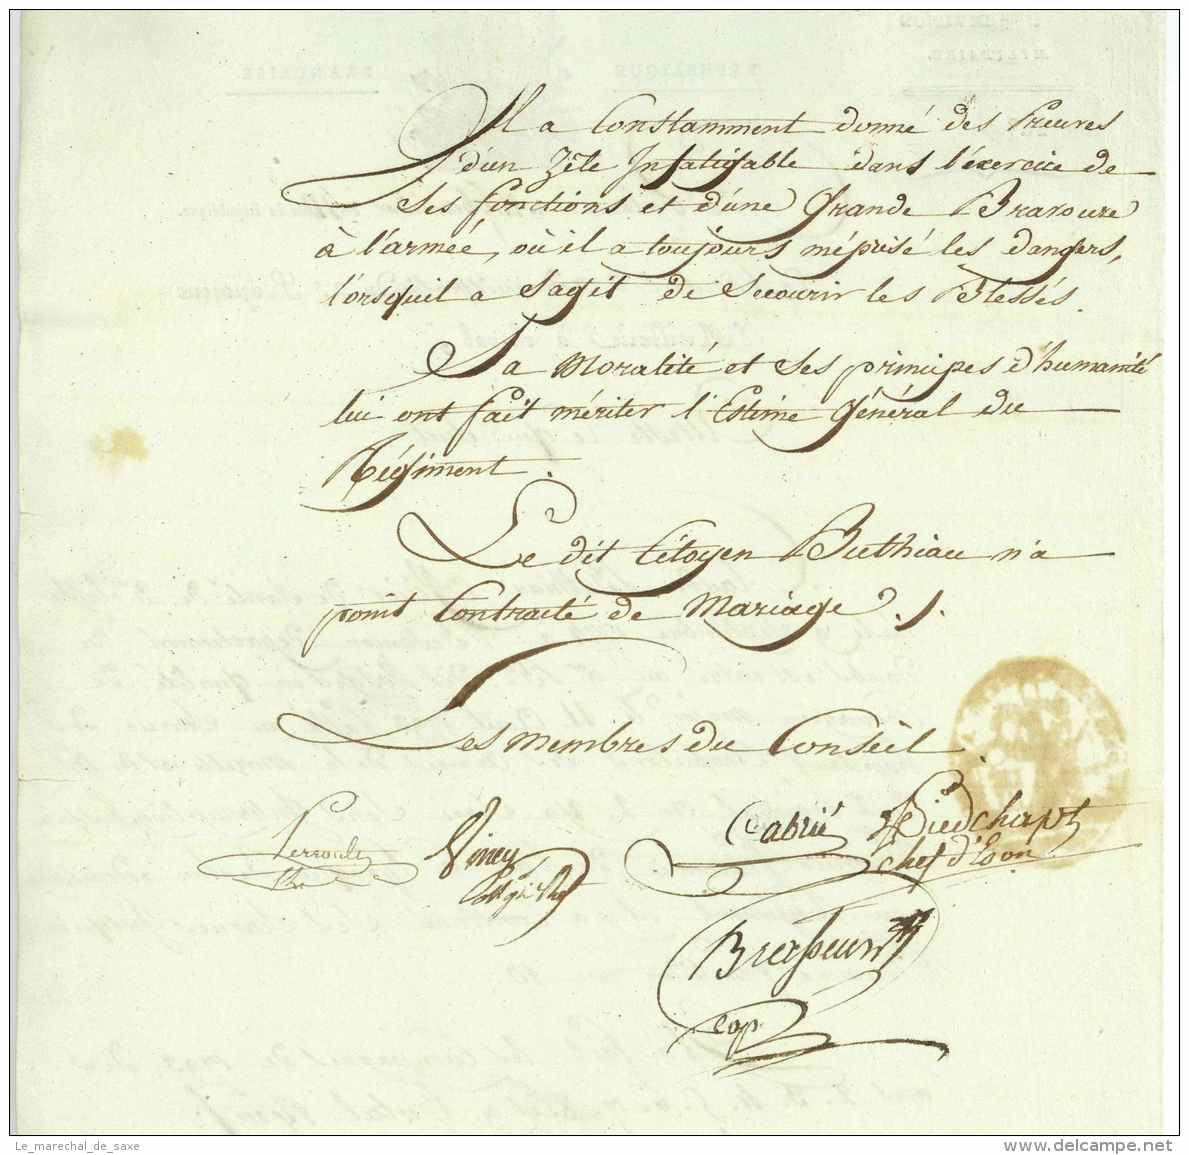 Il a Constamment donné des Preuves
d'un Zèle Infatigable dans l'éxercice de
Ses fonctions et d'une Grande Bravoure
à l'armée, où il a toujours méprisé les dangers,
lorsquil a Sagit de Secourir les Blessés.
Sa Moralité et Ses principes d'humanité
lui ont fait mériter l'Estime Général du
Régiment.
Le dit Citoyen Buthiau n'a
point Contracté de Mariage ./.
Les Membres du Conseil
Cabrié Piedchapt
chef d'Eon
Brasseur
Cap
Le_marechal_de_saxe
www.delcampe.net